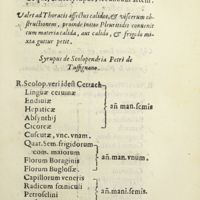 Valet ad Thoracis affectus calidos, & viscerum ob-
structionem, proinde initio Pleuritidis convenit
cum materia calida, aut calido, & frigido mi-
xta gutta petit.
Syrupus de Scolopendria Petri de
Tussignano.
R. Scolop. veri idest Cetrach
Linguæ ceruinæ
Endiuiæ
Hepaticæ
Absynthij
Cicoreæ
añ. man. semis
Cuscutæ, vnc. vnam.
Quat. Sem. frigidorum
com. maiorum
Florum Boraginis
Florum Buglossæ
añ. man. vnum.
Capillorum veneris
Radicum fœniculi
Petroselini
añ. mani. semis.